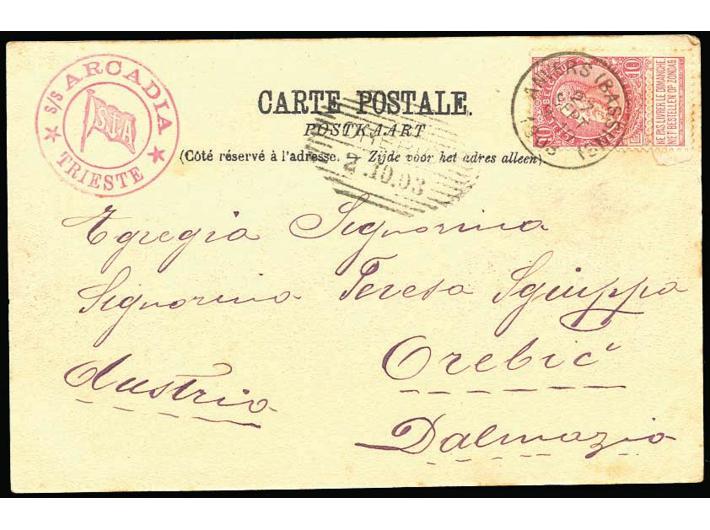 S/S ARCADIA
S I A
TRIESTE
CARTE POSTALE.
POSTKAART
(Côté réservé à l'adresse. Zijde voor het adres alleen)
ANVERS (BASSINS)
SEPT
10
10
NE PAS LIVRER LE DIMANCHE
NIET BESTELLEN OP ZONDAG
2.10.03
Egregia Signorina
Signorina Teresa Sguippa
Orebić
Austria
Dalmazia